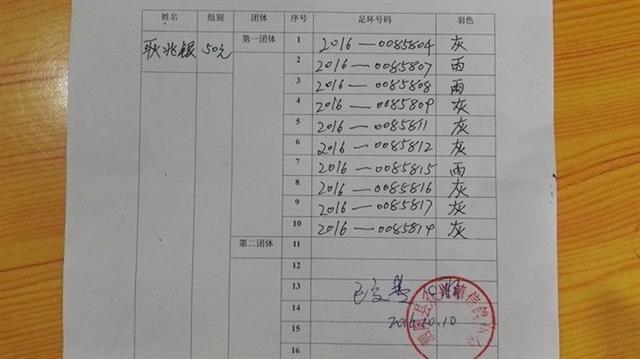 姓名 组别 团体 序号 足环号码 羽色
耿兆银 50元 第一团体 1 2016—0085804 灰
2 2016—0085807 雨
3 2016—0085808 雨
4 2016—0085809 灰
5 2016—0085811 灰
6 2016—0085812 灰
7 2016—0085815 雨
8 2016—0085816 灰
9 2016—0085817 灰
10 2016—0085819 灰
第二团体 11
12
13
14 2016.10.10
15
16